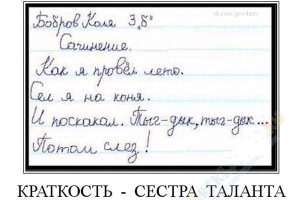 Бобров Коля 3 "б"
Сочинение.
Как я провёл лето.
Сел я на коня.
И поскакал. Тыг-дык, тыг-дык...
Потом слез!
КРАТКОСТЬ - СЕСТРА ТАЛАНТА